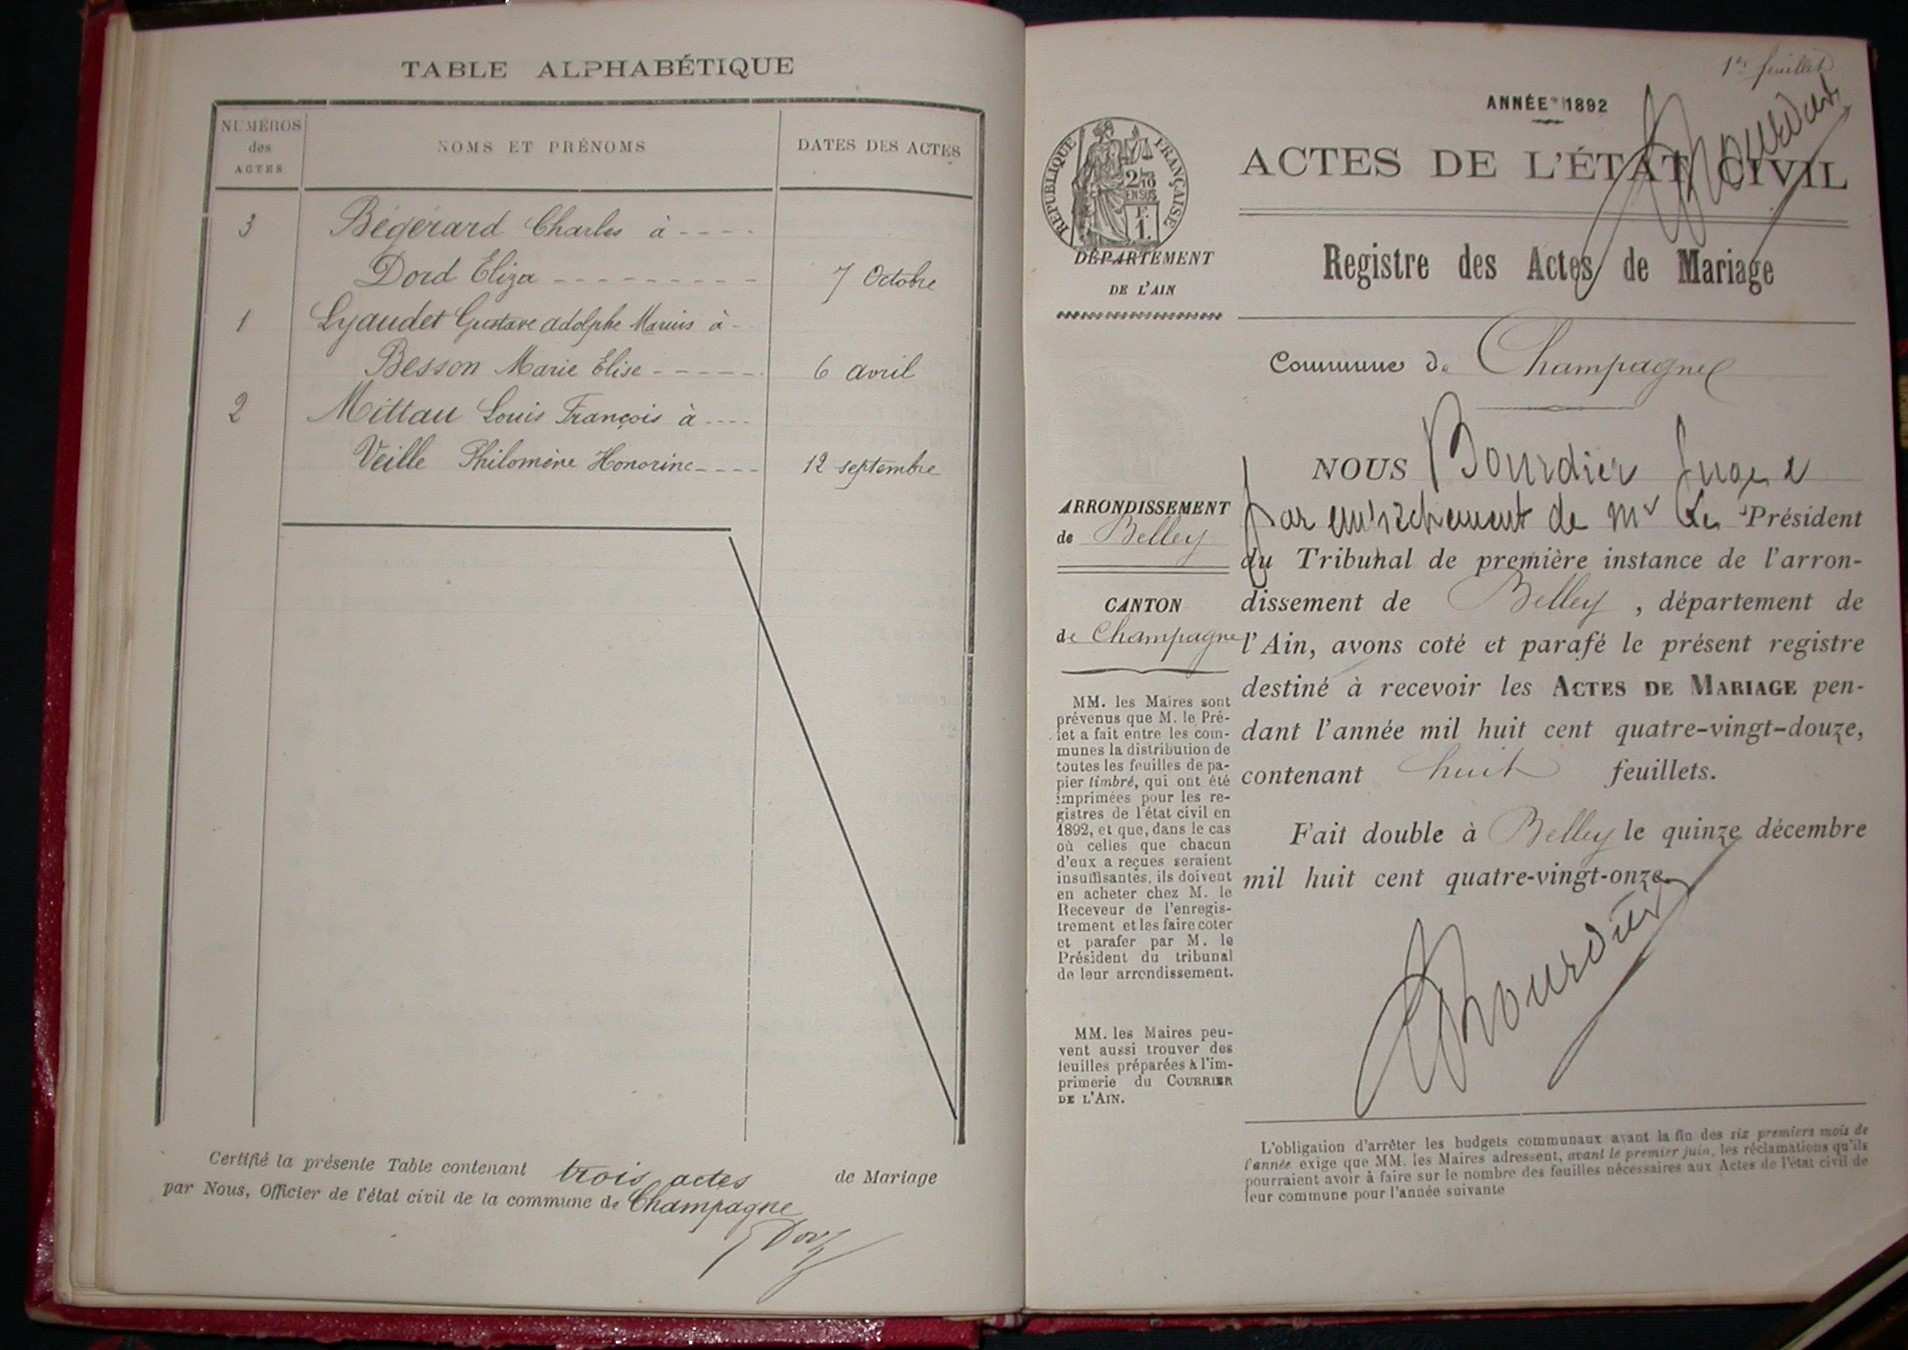 TABLE ALPHABÉTIQUE
NUMÉROS
des
ACTES
NOMS ET PRÉNOMS
DATES DES ACTES
3 Bégérard Charles à
Dord Eliza 7 Octobre
1 Lyaudet Gustave adolphe Marius à
Besson Marie Elise 6 avril
2 Mittau Louis François à
Veille Philomène Honorine 12 septembre
Certifié la présente Table contenant trois actes de Mariage
par Nous, Officier de l'état civil de la commune de Champagne
1er feuillet
ANNÉE 1892
ACTES DE L'ÉTAT CIVIL
RÉPUBLIQUE FRANÇAISE
2/10
EN SUS
F.
1.
DÉPARTEMENT
DE L'AIN
Registre des Actes de Mariage
Commune de Champagne
ARRONDISSEMENT
de Belley
CANTON
de Champagne
MM. les Maires sont
prévenus que M. le Pré-
fet a fait entre les com-
munes la distribution de
toutes les feuilles de pa-
pier timbré, qui ont été
imprimées pour les re-
gistres de l'état civil en
1892, et que, dans le cas
où celles que chacun
d'eux a reçues seraient
insuffisantes, ils doivent
en acheter chez M. le
Receveur de l'enregis-
trement et les faire coter
et parafer par M. le
Président du tribunal
de leur arrondissement.
MM. les Maires peu-
vent aussi trouver des
feuilles préparées à l'im-
primerie du COURRIER
DE L'AIN.
NOUS Bourdier Juge
par empêchement de Mr Le Président
du Tribunal de première instance de l'arron-
dissement de Belley, département de
l'Ain, avons coté et parafé le présent registre
destiné à recevoir les ACTES DE MARIAGE pen-
dant l'année mil huit cent quatre-vingt-douze,
contenant huit feuillets.
Fait double à Belley le quinze décembre
mil huit cent quatre-vingt-onze.
Bourdier
L'obligation d'arrêter les budgets communaux avant la fin des six premiers mois de
l'année exige que MM. les Maires adressent, avant le premier juin, les réclamations qu'ils
pourraient avoir à faire sur le nombre des feuilles nécessaires aux Actes de l'état civil de
leur commune pour l'année suivante